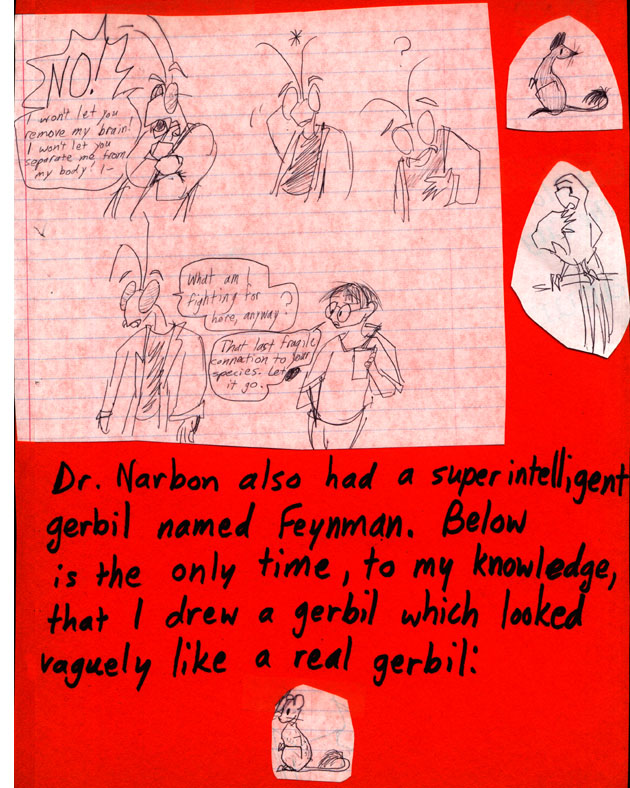 NO!
I won't let you
remove my brain!
I won't let you
separate me from
my body! I-
*
?
What am I
fighting for
here, anyway?
That last fragile
connection to your
species. Let
it go.
Dr. Narbon also had a super intelligent
gerbil named Feynman. Below
is the only time, to my knowledge,
that I drew a gerbil which looked
vaguely like a real gerbil: